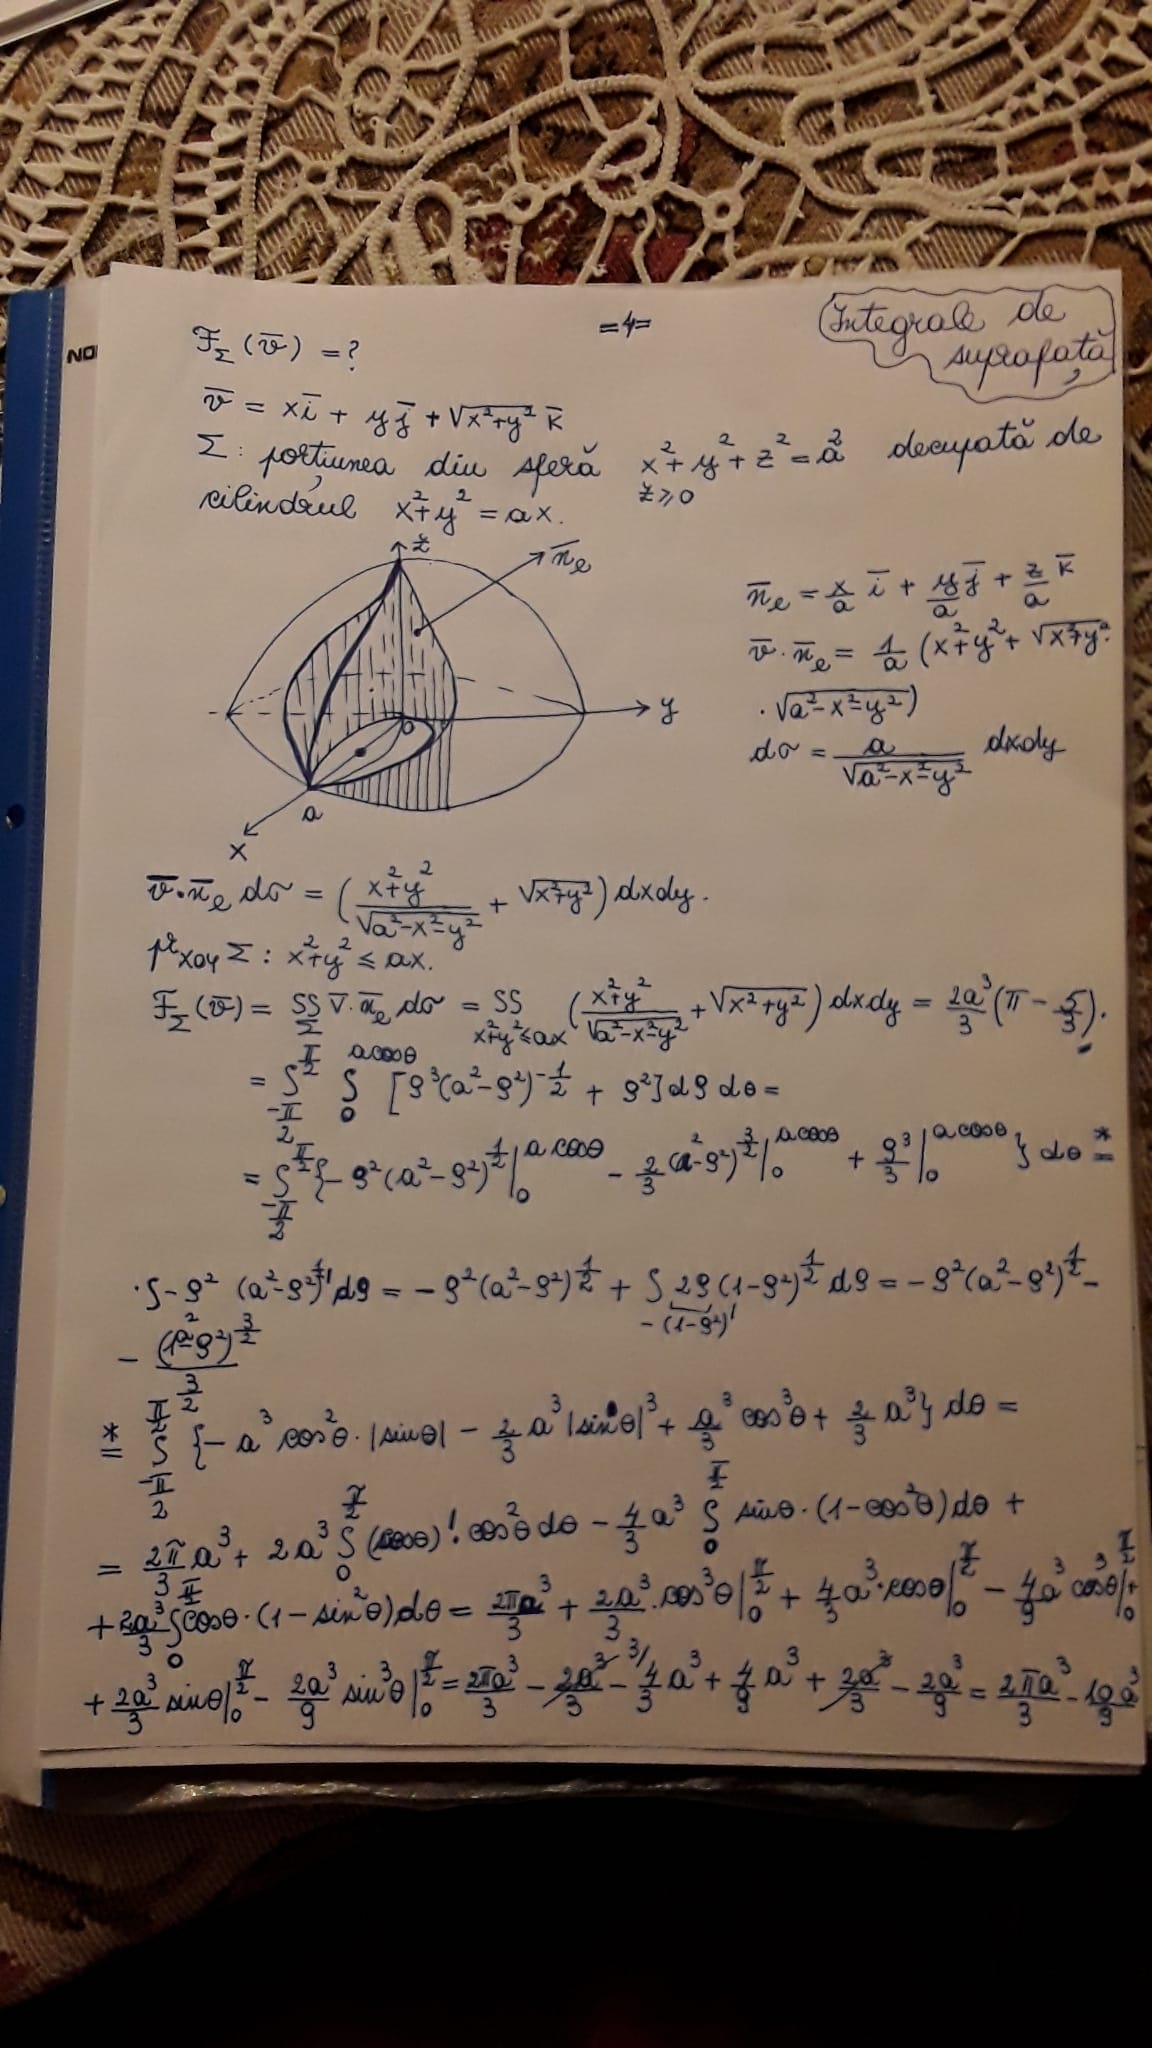 =4=
Integrale de
suprafață
NO
F_Σ (v̄) = ?
v̄ = x ī + y j̄ + √(x²+y²) k̄
Σ: porțiunea din sferă x²+y²+z²=a² decupată de
z⩾0
cilindrul x²+y²=ax.
z
n̄_e
y
o
a
x
n̄_e = x/a ī + y/a j̄ + z/a k̄
v̄·n̄_e = 1/a (x²+y²+ √(x²+y²)·
·√(a²-x²-y²))
dσ = a/√(a²-x²-y²) dxdy
v̄·n̄_e dσ = ( (x²+y²)/√(a²-x²-y²) + √(x²+y²) ) dxdy.
pr_xoy Σ: x²+y² ⩽ ax.
F_Σ(v̄) = ∫∫_Σ v̄·n̄_e dσ = ∫∫_{x²+y²⩽ax} ( (x²+y²)/√(a²-x²-y²) + √(x²+y²) ) dxdy = 2a³/3 (π - 5/3).
= ∫_{-π/2}^{π/2} ∫_0^{a cosθ} [ρ³(a²-ρ²)^{-1/2} + ρ²] dρ dθ =
= ∫_{-π/2}^{π/2} {-ρ²(a²-ρ²)^{1/2} |_0^{a cosθ} - 2/3 (a²-ρ²)^{3/2} |_0^{a cosθ} + ρ³/3 |_0^{a cosθ} } dθ =*
·∫-ρ² (a²-ρ²)^{1/2}' dρ = -ρ²(a²-ρ²)^{1/2} + ∫ 2ρ (1-ρ²)^{1/2} dρ = -ρ²(a²-ρ²)^{1/2} -
-(1-ρ²)'
- (a²-ρ²)^{3/2} / (3/2)
=* ∫_{-π/2}^{π/2} {-a³ cos²θ·|sinθ| - 2/3 a³ |sinθ|³ + a³/3 cos³θ + 2/3 a³} dθ =
= 2π/3 a³ + 2a³ ∫_0^{π/2} (cosθ)'·cos²θ dθ - 4/3 a³ ∫_0^{π/2} sinθ·(1-cos²θ) dθ +
+ 2a³/3 ∫_0^{π/2} cosθ·(1-sin²θ) dθ = 2πa³/3 + 2a³/3·cos³θ |_0^{π/2} + 4/3 a³·cosθ |_0^{π/2} - 4/9 a³ cos³θ |_0^{π/2} +
+ 2a³/3 sinθ |_0^{π/2} - 2a³/9 sin³θ |_0^{π/2} = 2πa³/3 - 2a³/3 - 3/ 4/3 a³ + 4/9 a³ + 2a³/3 - 2a³/9 = 2πa³/3 - 10a³/9